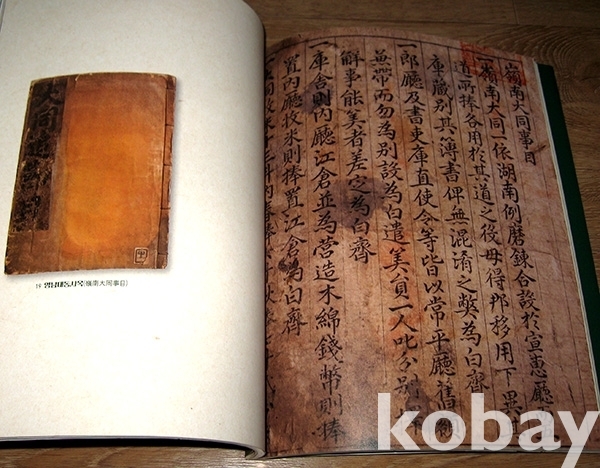 영남대동사목(嶺南大同事目)
嶺南大同事目
一嶺南大同一依湖南例磨鍊合設於宣惠廳
道所捧各用於其道之後毋得那移用下異
庫藏別其簿書俾無混淆之獘為白齊
一郎廳及書吏庫直使令等皆以常平廳舊
兼帶而勿為別設為白遣筭員一人叱分別
解事能筭者差定為白齊
一庫舍則內廳江倉並為營造木綿錢幣則捧
置內廳收米則捧置江倉為白齊
kobay